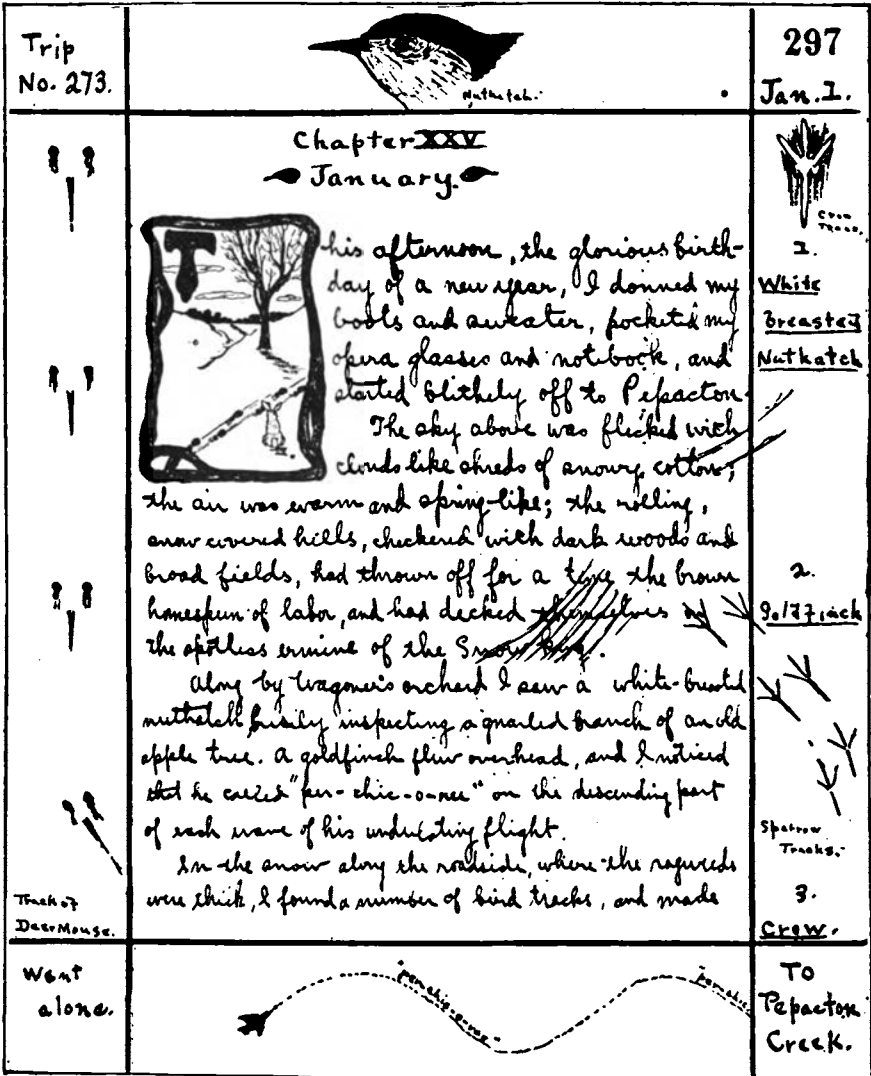 Trip
No. 273.
Nuthatch.
297
Jan. 1.
Chapter XXV
January.
This afternoon, the glorious birth-
day of a new year, I donned my
boots and sweater, pocketed my
opera glasses and notebook, and
started blithely off to Pepacton.
The sky above was flecked with
clouds like shreds of snowy cotton;
the air was warm and spring-like; the rolling,
snow covered hills, checkered with dark woods and
broad fields, had thrown off for a time the brown
homespun of labor, and had decked themselves in
the spotless ermine of the Snow King.
Along by Wagoner's orchard I saw a white-breasted
nuthatch busily inspecting a gnarled branch of an old
apple tree. A goldfinch flew overhead, and I noticed
that he called "per-chic-o-ree" on the descending part
of each wave of his undulating flight.
In the snow along the roadside, where the ragweeds
were thick, I found a number of bird tracks, and made
Crow
Track.
1.
White
Breasted
Nuthatch
2.
Goldfinch
Sparrow
Tracks.
3.
Crow.
Track of
Deer Mouse.
Went
alone.
"per-chic-o-ree"
"per-chic
To
Pepacton
Creek.